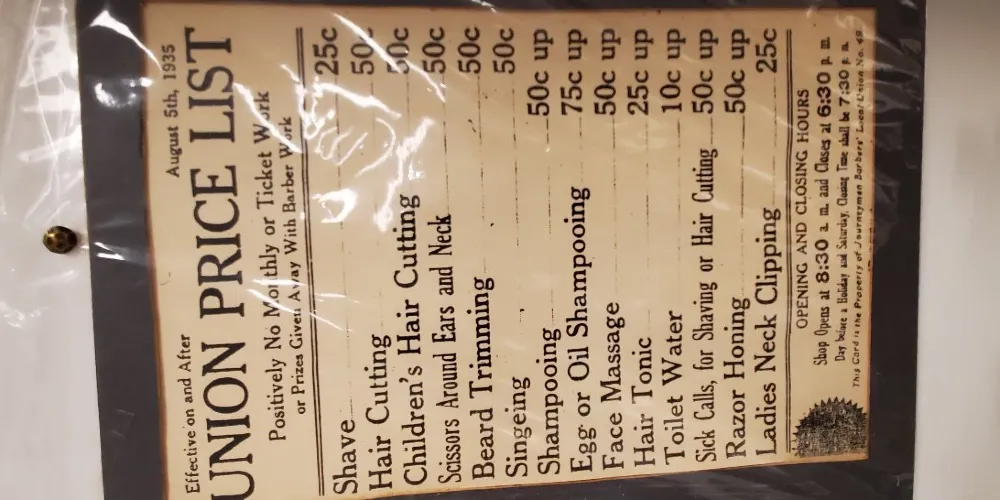 Effective on and After August 5th, 1935
UNION PRICE LIST
Positively No Monthly or Ticket Work
or Prizes Given Away With Barber Work
Shave 25c
Hair Cutting 50c
Children's Hair Cutting 50c
Scissors Around Ears and Neck 50c
Beard Trimming 50c
Singeing 50c
Shampooing 50c up
Egg or Oil Shampooing 75c up
Face Massage 50c up
Hair Tonic 25c up
Toilet Water 10c up
Sick Calls, for Shaving or Hair Cutting 50c up
Razor Honing 50c up
Ladies Neck Clipping 25c
OPENING AND CLOSING HOURS
Shop Opens at 8:30 a. m. and Closes at 6:30 p. m.
Day before a Holiday and Saturday, Closing Time shall be 7:30 p. m.
This Card is the Property of Journeymen Barbers' Local Union No.